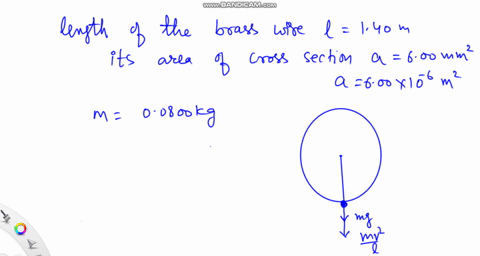 WWW.BANDICAM.COM
length of the brass wire l = 1.40 m
its area of cross section a = 6.00 mm²
a = 6.00 × 10⁻⁶ m²
m = 0.0800 kg
mg
mv²/l